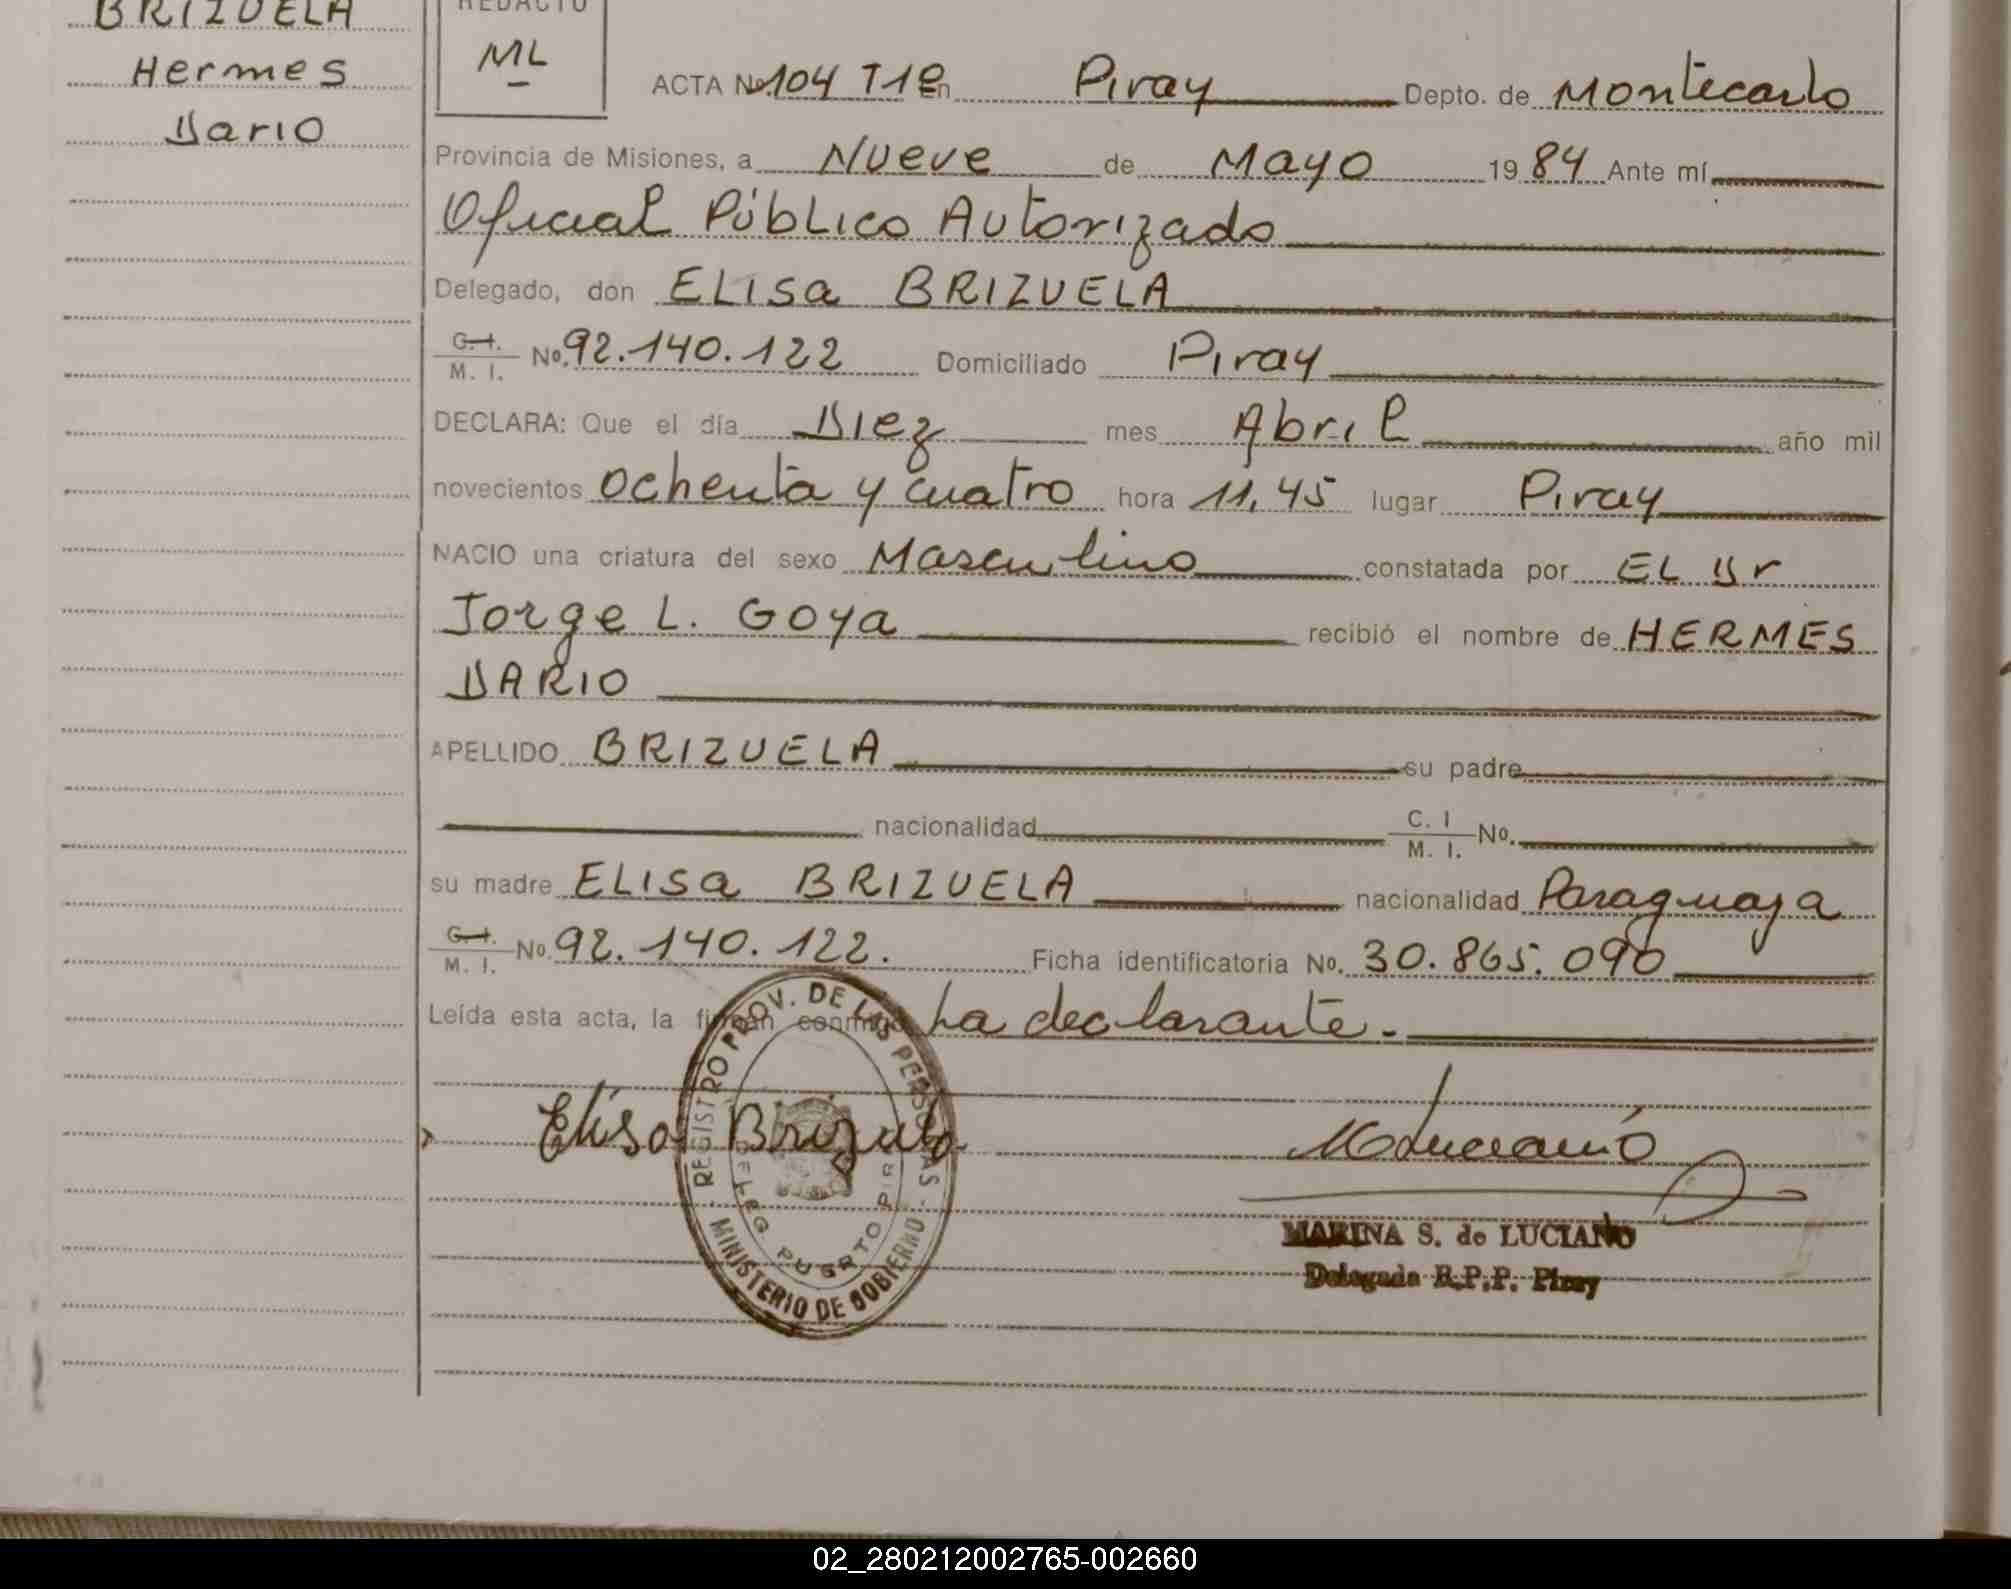 BRIZUELA
Hermes
Dario
REDACTO
ML
ACTA No. 104 T1º En Piray Depto. de Montecarlo
Provincia de Misiones, a Nueve de Mayo 1984 Ante mí
Oficial Público Autorizado
Delegado, don ELISa BRIZUELA
C. I. M. I. No. 92.140.122 Domiciliado Piray
DECLARA: Que el día Diez mes Abril año mil
novecientos ochenta y cuatro hora 11,45 lugar Piray
NACIO una criatura del sexo Masculino constatada por EL Dr
Jorge L. Goya recibió el nombre de HERMES
DARIO
APELLIDO BRIZUELA su padre
nacionalidad C. I M. I. No.
su madre ELISa BRIZUELA nacionalidad Paraguaya
C. I. M. I. No. 92.140.122. Ficha identificatoria No. 30.865.090
Leída esta acta, la firman conmigo La declarante.-
REGISTRO PROV. DE LAS PERSONAS
DELEG PUERTO PIR
MINISTERIO DE GOBIERNO
Elisa Brizuela
MLuciano
MARINA S. de LUCIANO
Delegada R.P.P. Piray
02_280212002765-002660